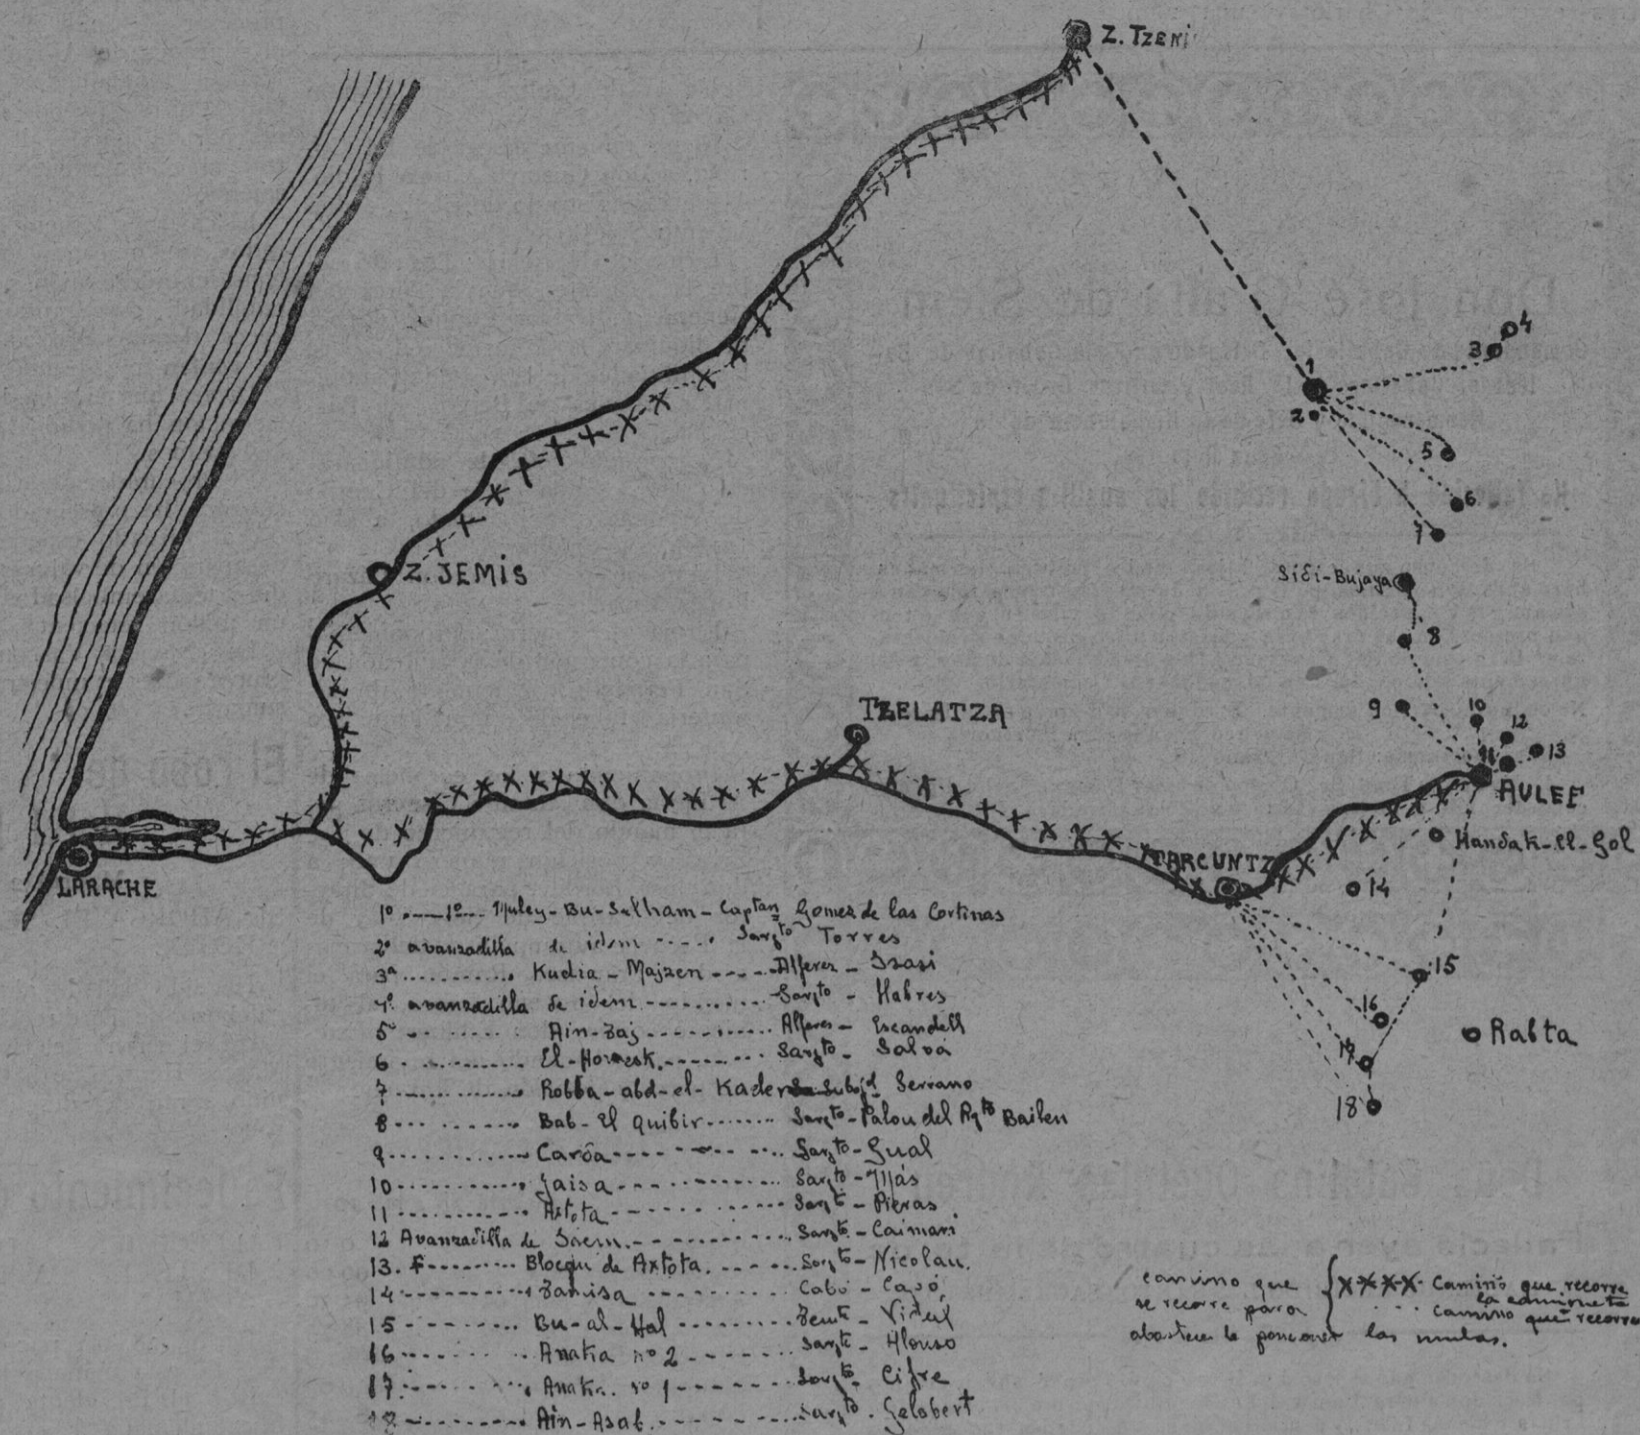 Z. TZENI
4
3
1
2
5
6
7
Z. JEMIS
Sidi-Bujaya
8
9
10
12
11
13
TZELATZA
AULEF
Handak-el-Gol
TARCUNTZ
14
LARACHE
15
16
17
18
Rabta
1º 1º Muley-Bu-Selham - Captan Gomez de las Cortinas
2º avanzadilla de idem Sargto Torres
3ª Kudia - Majzen Alferez - Isasi
4ª avanzadilla de idem Sargto - Habres
5 Ain-Zaj Alferez - Escandell
6 El-Homesk. Sargto - Salvá
7 Robba-abd-el-Kader Subofl Serrano
8 Bab-El Quibir Sargto - Palou del Rgto Bailen
9 Caróa Sargto - Gual
10 Jaisa Sargto - Más
11 Axtota Sargto - Pieras
12 Avanzadilla de Idem Sargto - Caimari
13. Blocqu de Axtota. Sargto - Nicolau.
14 Zamisa Cabo - Capó
15 Bu-al-Hal Tente - Videl
16 Anaka nº 2 Sargto - Alonso
17 Anaka nº 1 Sargto - Cifre
18 Ain-Asab. Sargto. Gelabert
camino que
se recorre para
XXXX Camino que recorre
la camioneta
camino que recorren
las mulas.